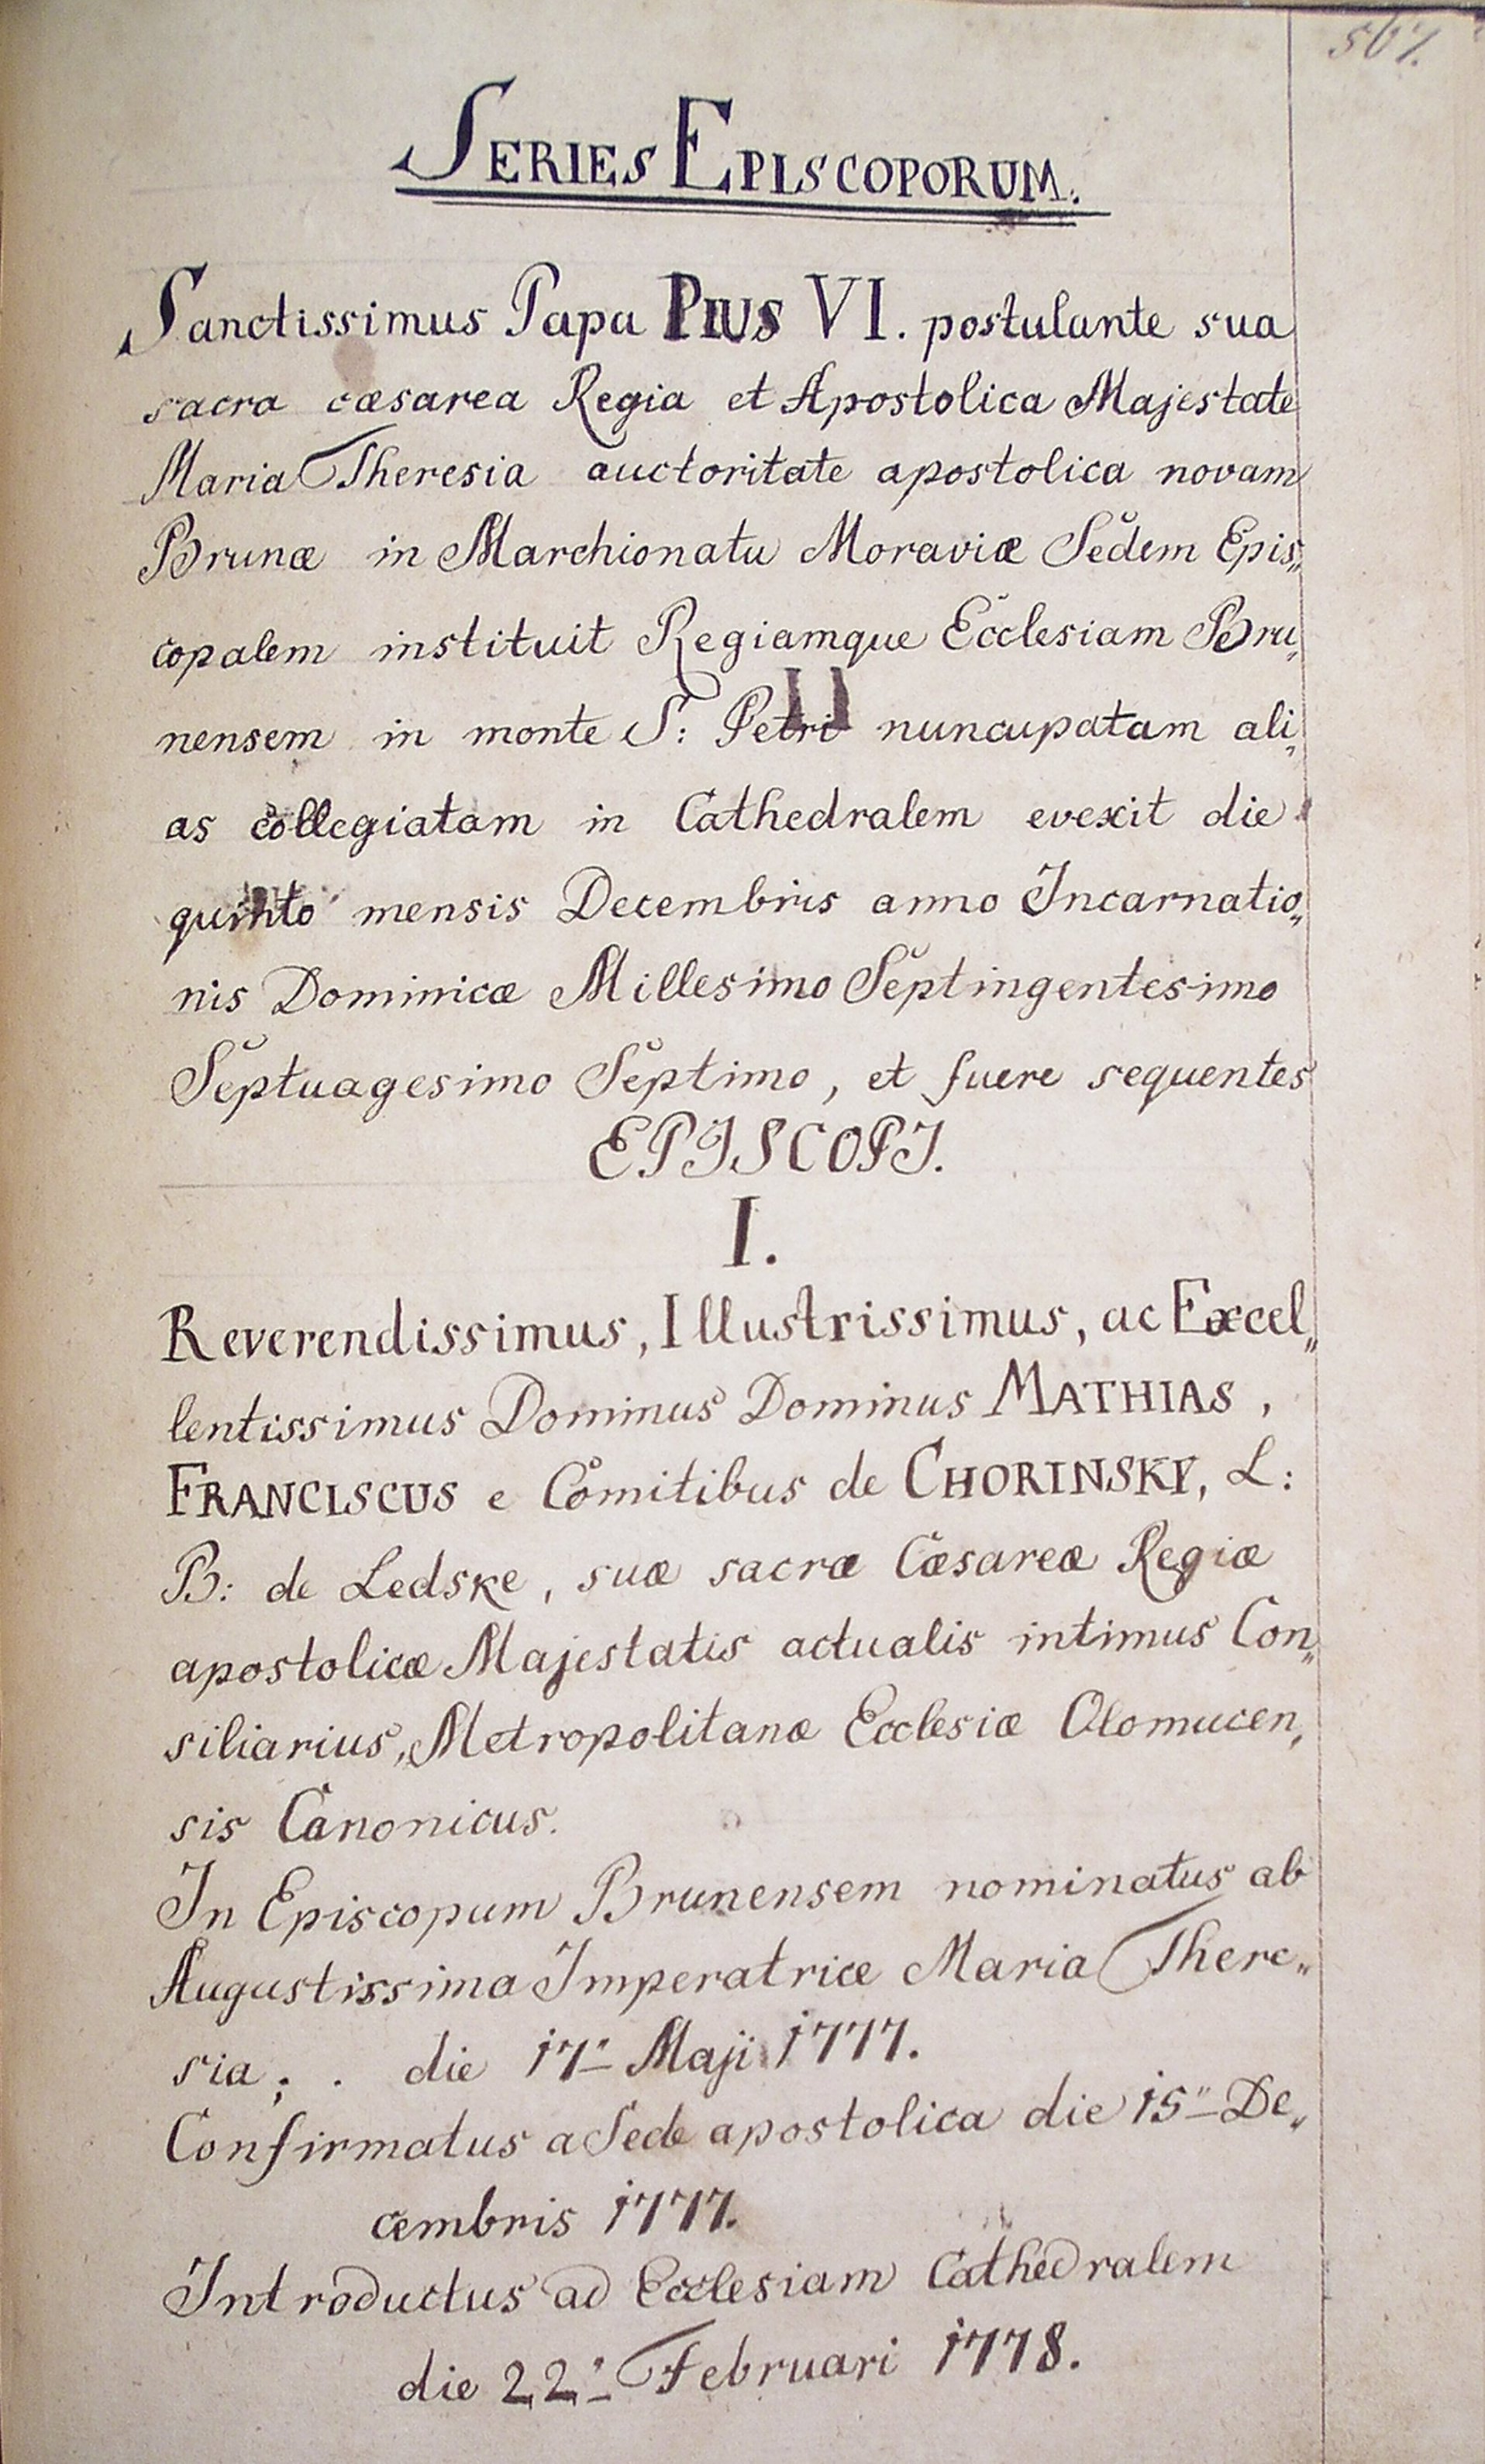 567.
SERIES EPISCOPORUM.
Sanctissimus Papa PIUS VI. postulante sua
sacra cæsarea Regia et Apostolica Majestate
Maria Theresia auctoritate apostolica novam
Brunæ in Marchionatu Moraviæ Sedem Epis„
copalem instituit Regiamque Ecclesiam Bru„
nensem in monte S: Petri nuncupatam ali„
as collegiatam in Cathedralem evexit die
quinto mensis Decembris anno Incarnatio„
nis Dominicæ Millesimo Septingentesimo
Septuagesimo Septimo, et fuere sequentes
EPISCOPI.
I.
Reverendissimus, Illustrissimus, ac Excel„
lentissimus Dominus Dominus MATHIAS,
FRANCISCUS e Comitibus de CHORINSKY, L:
B: de Ledske, suæ sacræ Cæsareæ Regiæ
apostolicæ Majestatis actualis intimus Con„
siliarius, Metropolitanæ Ecclesiæ Olomucen„
sis Canonicus.
In Episcopum Brunensem nominatus ab
Augustissima Imperatrice Maria There„
sia; . die 17. Maji 1777.
Confirmatus a Sede apostolica die 15" De„
cembris 1777.
Introductus ad Ecclesiam Cathedralem
die 22. Februari 1778.